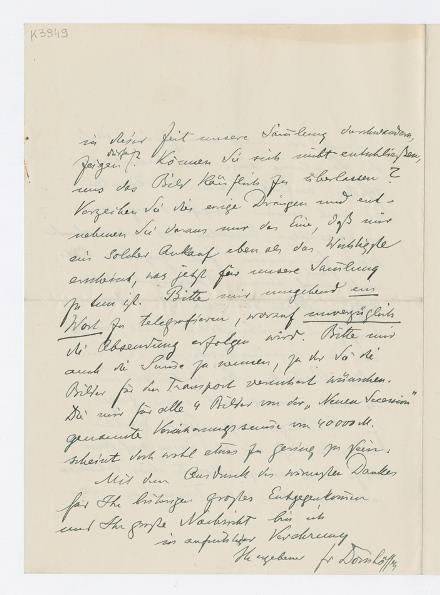 K3949
in dieser Zeit unsere Samlung durchwandern,
dürfen
zeigen! Können Sie sich nicht entschließen,
uns das Bild käuflich zu überlassen?
Verzeihen Sie dies ewige Drängen und ent-
nehmen Sie daraus nur das Eine, daß mir
ein solcher Ankauf eben als das Wichtigste
erscheint, was jetzt für unsere Samlung
zu tun ist. Bitte mir umgehend ein
Wort zu telegrafieren, worauf unverzüglich
die Absendung erfolgen wird. Bitte mir
auch die Summe zu nennen, zu der Sie die
Bilder für den Transport versichert wünschen.
Die mir für alle 4 Bilder von der „Neuen Secession"
genannte Versicherungssumme von 40000 M.
scheint doch wohl etwas zu gering zu sein.
Mit dem Ausdruck des wärmsten Dankes
für Ihr bisheriges großes Entgegenkommen
und Ihre große Nachsicht bin ich
in aufrichtiger Verehrung
Ihr ergebener Fr Dörnhöffer